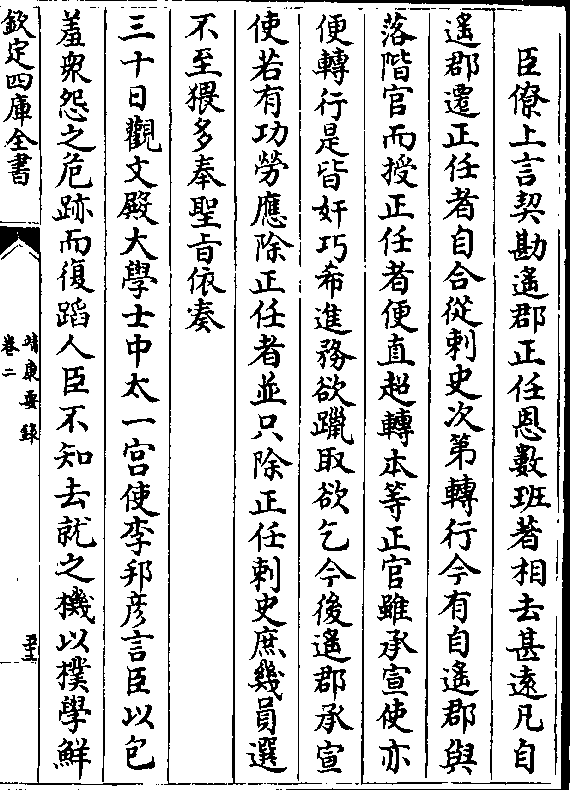 臣僚上言契勘遙郡正任恩數班著相去甚遠凡自
遙郡遷正任者自合從刺史次第轉行今有自遙郡與
落階官而授正任者便直超轉本等正官雖承宣使亦
便轉行是皆奸巧希進務欲躐取欲乞今後遙郡承宣
使若有功勞應除正任者並只除正任刺史庶幾員選
不至猥多奉聖旨依奏
三十日觀文殿大學士中太一宮使李邦彦言臣以包
羞衆怨之危跡而復蹈人臣不知去就之機以樸學鮮
欽定四庫全書
靖康要錄
卷二